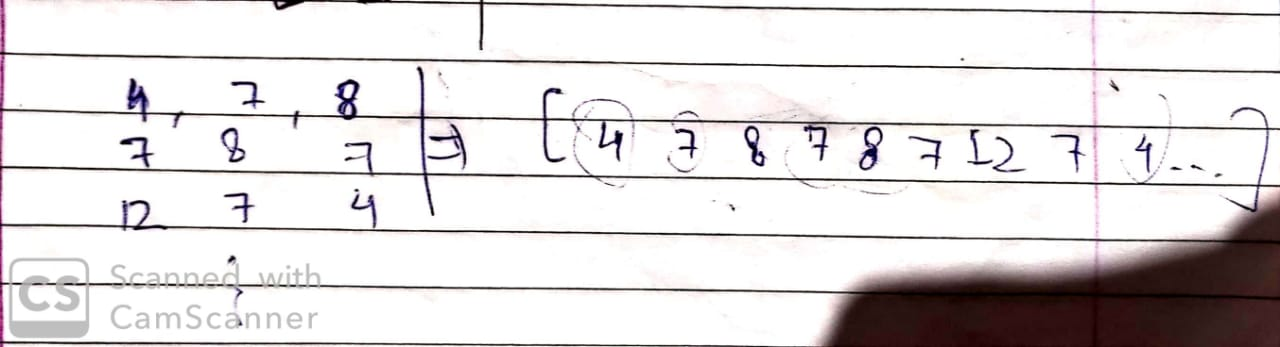 4, 7, 8 ⇒ [4 7 8 7 8 7 12 7 4...]
7 8 7
12 7 4
CS Scanned with
CamScanner